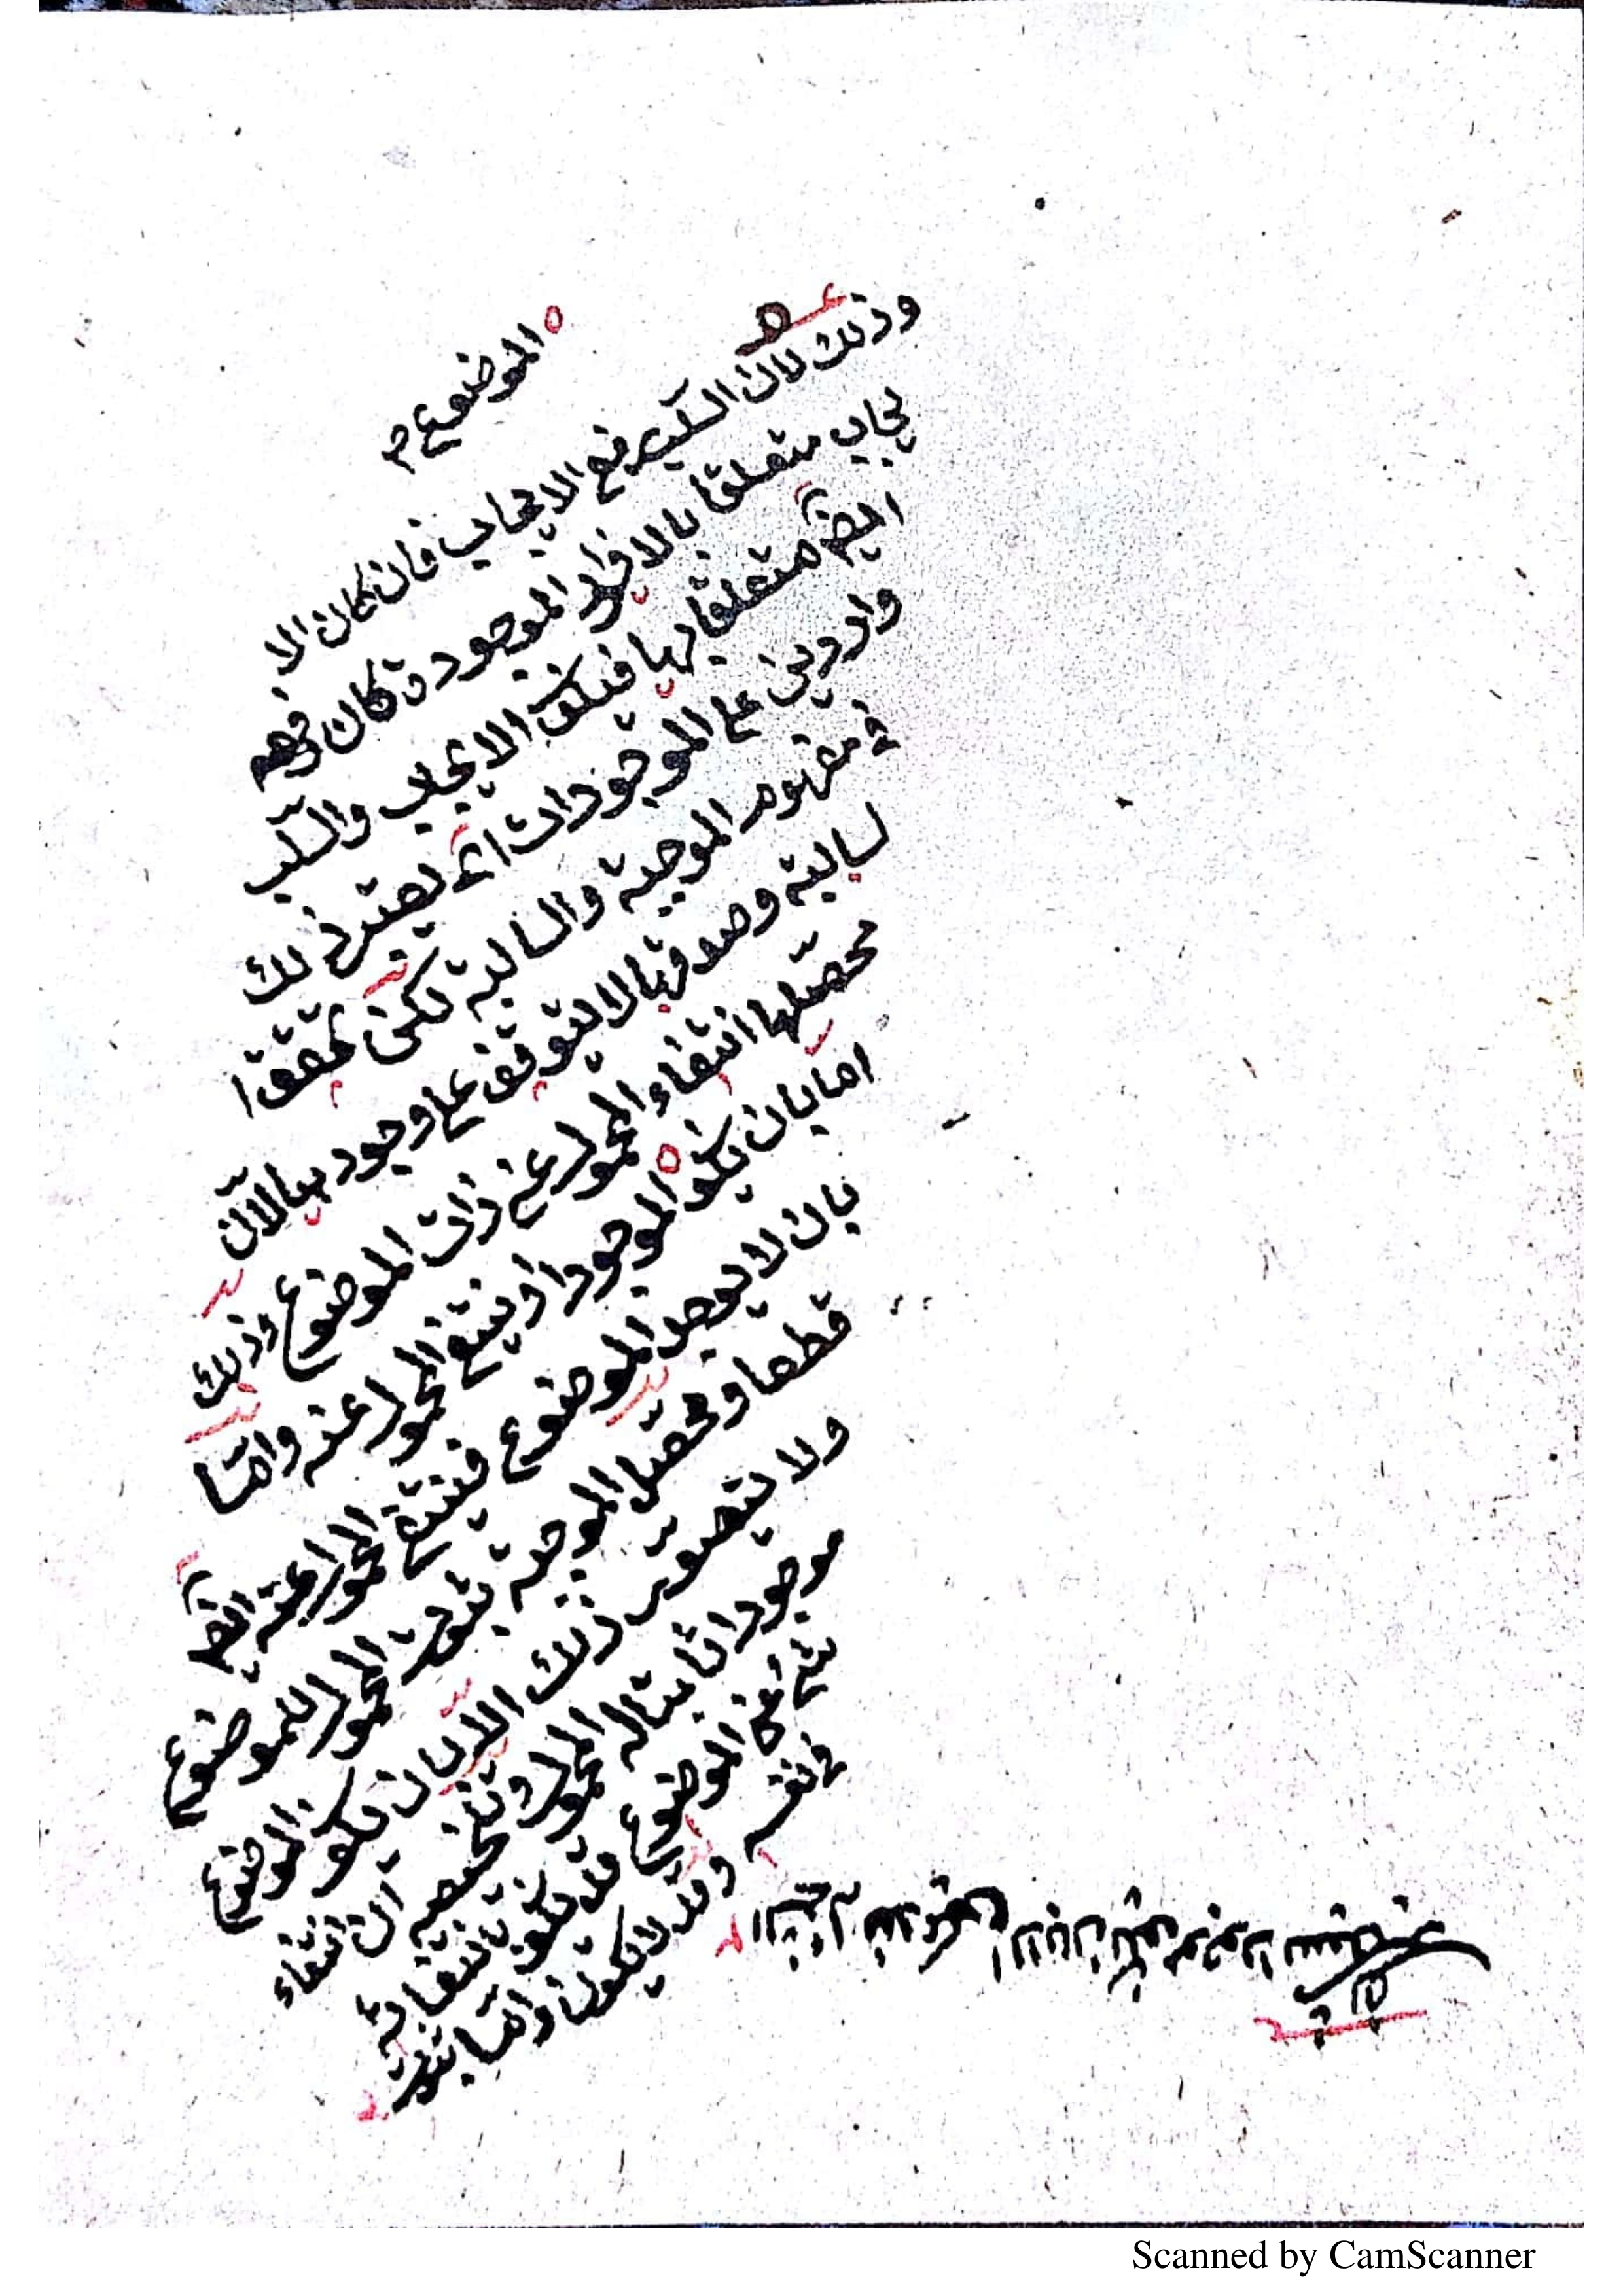 الموضوع م
وذلك لان السلب رفع الايجاب فان كان الا
يجاب متعلقا بالافراد الموجودة كان رفعه
ايضا متعلقا بها فيكون الايجاب والسلب
واردين على الموجودات اى يعتبر ذلك
فى مفهوم الموجبة والسالبة لكن تحقق ا
لسالبة وصدقها لا يتوقف على وجودها لان
محصّلها انتفاء المحمول عن ذات الموضوع وذلك
اما بان يكون موجودا وينتفى المحمول عنه وامّا
بان لا يوجد الموضوع فينتفى المحمول عنه ايضا
قطعا ومحصّل الموجبة ثبوت المحمول للموضوع
ولا يتصوّر ذلك الا بان يكون الموضوع
موجودا ثابتا له المحمول وتلخيصه ان انتفاء
شئ عن الموضوع قد يكون بانتفائه
فى نفسه وقد لا يكون وامّا ثبوت
Scanned by CamScanner